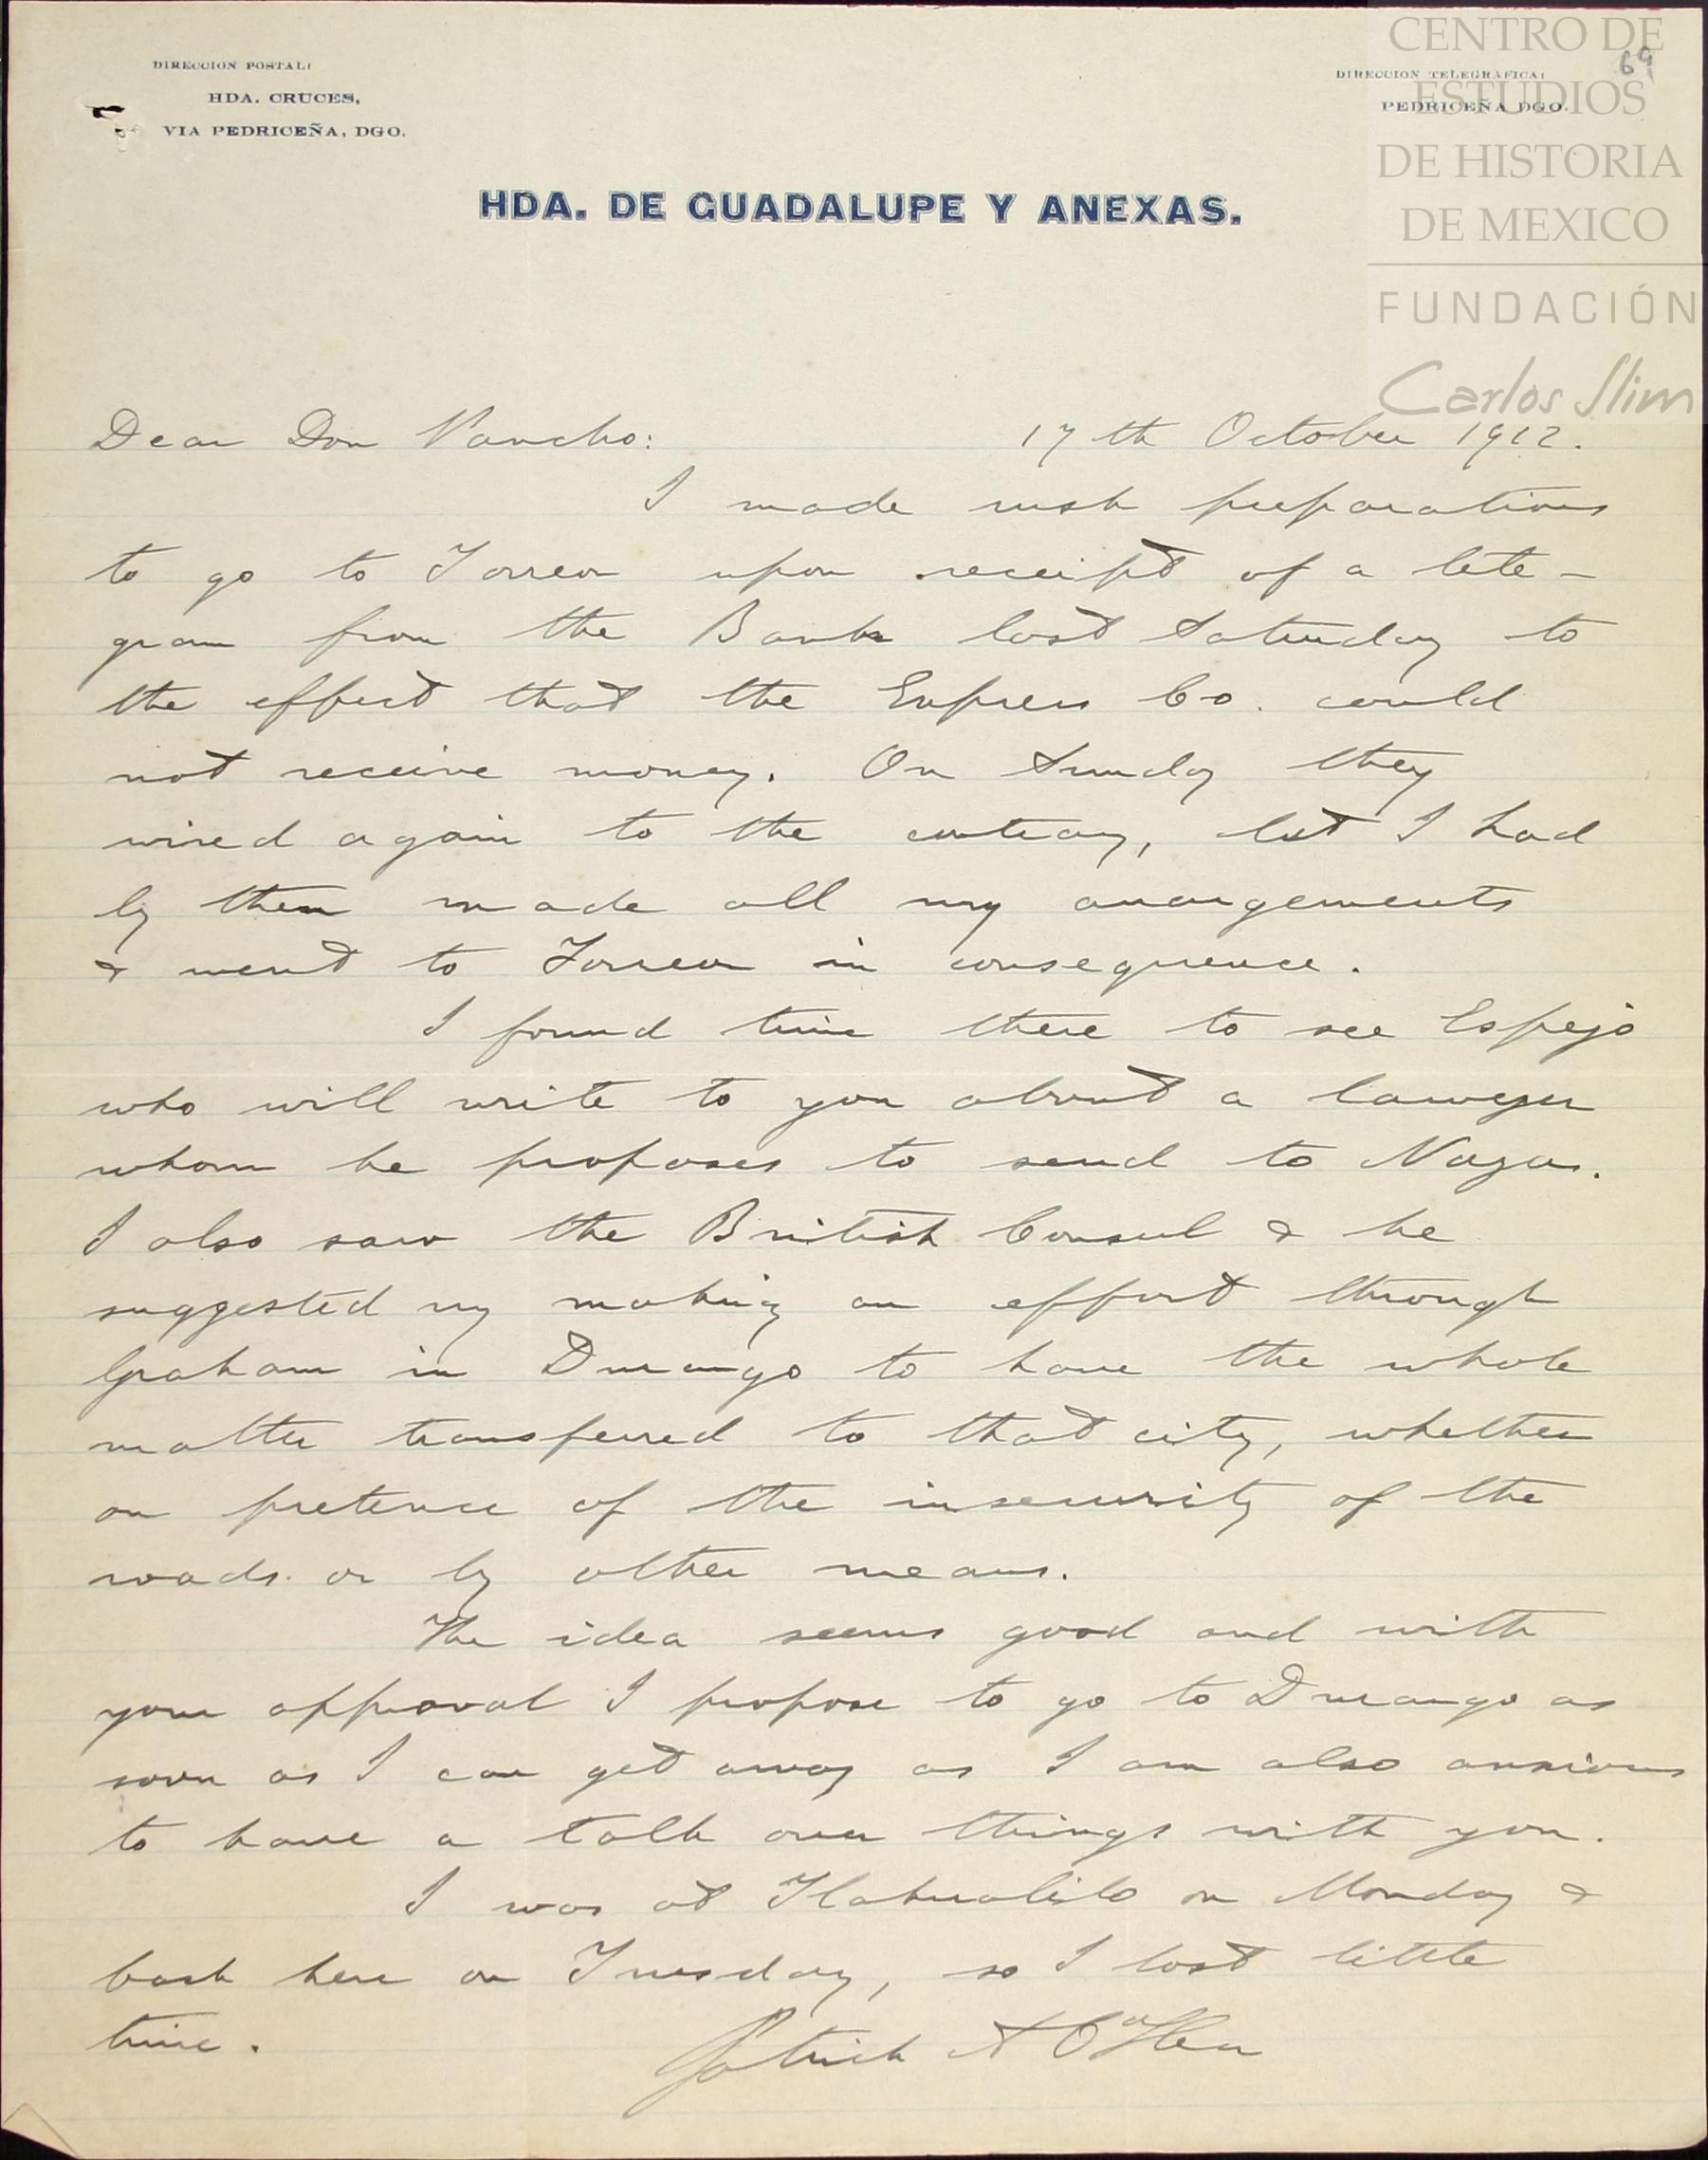 DIRECCION POSTAL:
HDA. CRUCES,
VIA PEDRICEÑA, DGO.
DIRECCION TELEGRAFICA:
PEDRICEÑA DGO.
69
CENTRO DE
ESTUDIOS
DE HISTORIA
DE MEXICO
FUNDACIÓN
Carlos Slim
HDA. DE GUADALUPE Y ANEXAS.
Dear Don Pancho: 17th October 1912.
I made rush preparations
to go to Torreon upon receipt of a tele-
gram from the Bank last Saturday to
the effect that the Express Co. could
not receive money. On Sunday they
wired again to the contrary, but I had
by then made all my arrangements
& went to Torreon in consequence.
I found time there to see Espejo
who will write to you about a lawyer
whom he proposes to send to Nazas.
I also saw the British Consul & he
suggested my making an effort through
Graham in Durango to have the whole
matter transferred to that city, whether
on pretence of the insecurity of the
roads or by other means.
The idea seems good and with
your approval I propose to go to Durango as
soon as I can get away as I am also anxious
to have a talk over things with you.
I was at Tlahualilo on Monday &
back here on Tuesday, so I lost little
time.
Patrick A O'Hea